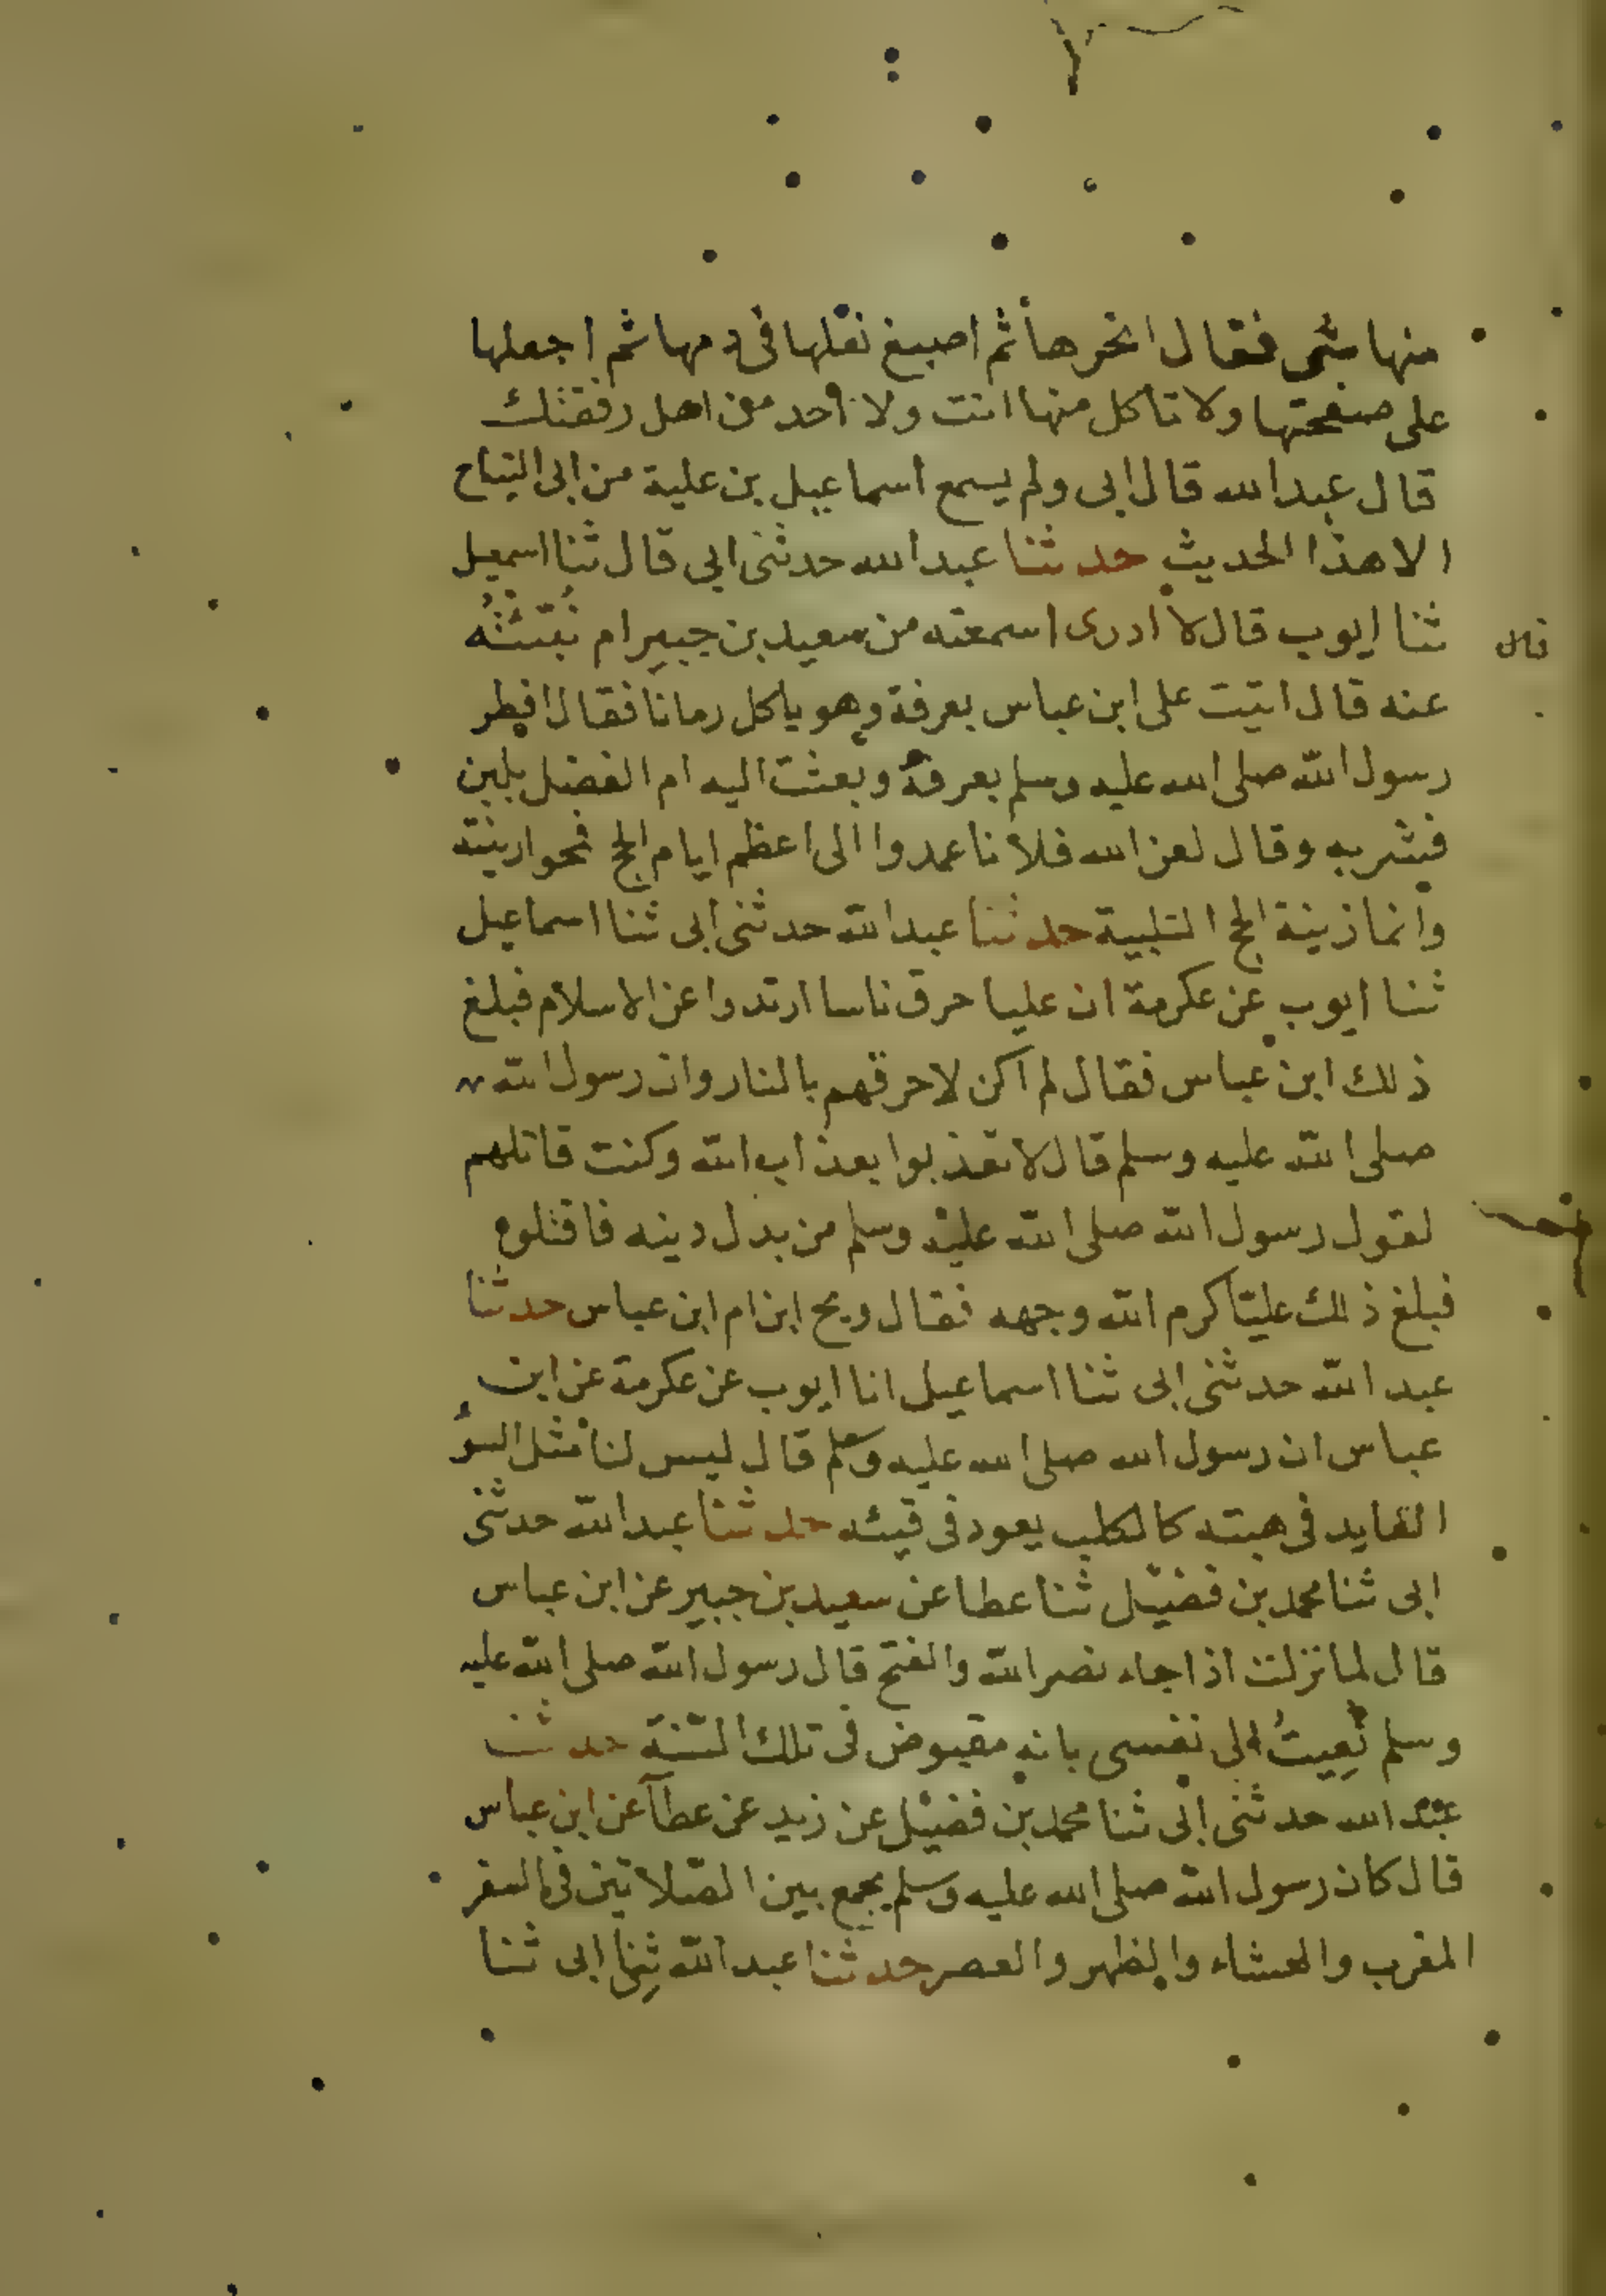 منها شى فقال انحرها ثم اصبغ نعلها فى دمها ثم اجعلها
على صفحتها ولا تاكل منها انت ولا احد من اهل رفقتك
قال عبد الله قال ابى ولم يسمع اسماعيل بن علية من ابى التياح
الا هذا الحديث حدثنا عبد الله حدثنى ابي قال ثنا اسمعيل
ثنا ايوب قال لا ادرى اسمعته من سعيد بن جبير ام نُبّئتُه
قال
عنه قال اتيت على ابن عباس بعرفة وهو ياكل رمانا فقال افطر
رسول الله صلى الله عليه وسلم بعرفة وبعثت اليه ام الفضل بلبن
فشربه وقال لعن الله فلانا عمدوا الى اعظم ايام الحج فمحوا زينته
وانما زينة الحج التلبية حدثنا عبد الله حدثنى ابى ثنا اسماعيل
ثنا ايوب عن عكرمة ان عليا حرق ناسا ارتدوا عن الاسلام فبلغ
ذلك ابن عباس فقال لم اكن لاحرقهم بالنار وان رسول الله
صلى الله عليه وسلم قال لا تعذبوا بعذاب الله وكنت قاتلهم
لقول رسول الله صلى الله عليه وسلم من بدل دينه فاقتلوه
فبلغ ذلك عليّا كرم الله وجهه فقال ويح ابن ام ابن عباس حدثنا
عبد الله حدثنى ابى ثنا اسماعيل انا ايوب عن عكرمة عن ابن
عباس ان رسول الله صلى الله عليه وسلم قال ليس لنا مثل السوء
العايد فى هبته كالكلب يعود فى قيئه حدثنا عبد الله حدثنى
ابى ثنا محمد بن فضيل ثنا عطا عن سعيد بن جبير عن ابن عباس
قال لما نزلت اذا جاء نصر الله والفتح قال رسول الله صلى الله عليه
وسلم نُعِيتُ الى نفسى بانه مقبوض فى تلك السّنة حدثنا
عبد الله حدثنى ابى ثنا محمد بن فضيل عن زيد عن عطآ عن ابن عباس
قال كان رسول الله صلى الله عليه وسلم يجمع بين الصّلاتين فى السفر
المغرب والعشاء والظهر والعصر حدثنا عبد الله ثنى ابى ثنا